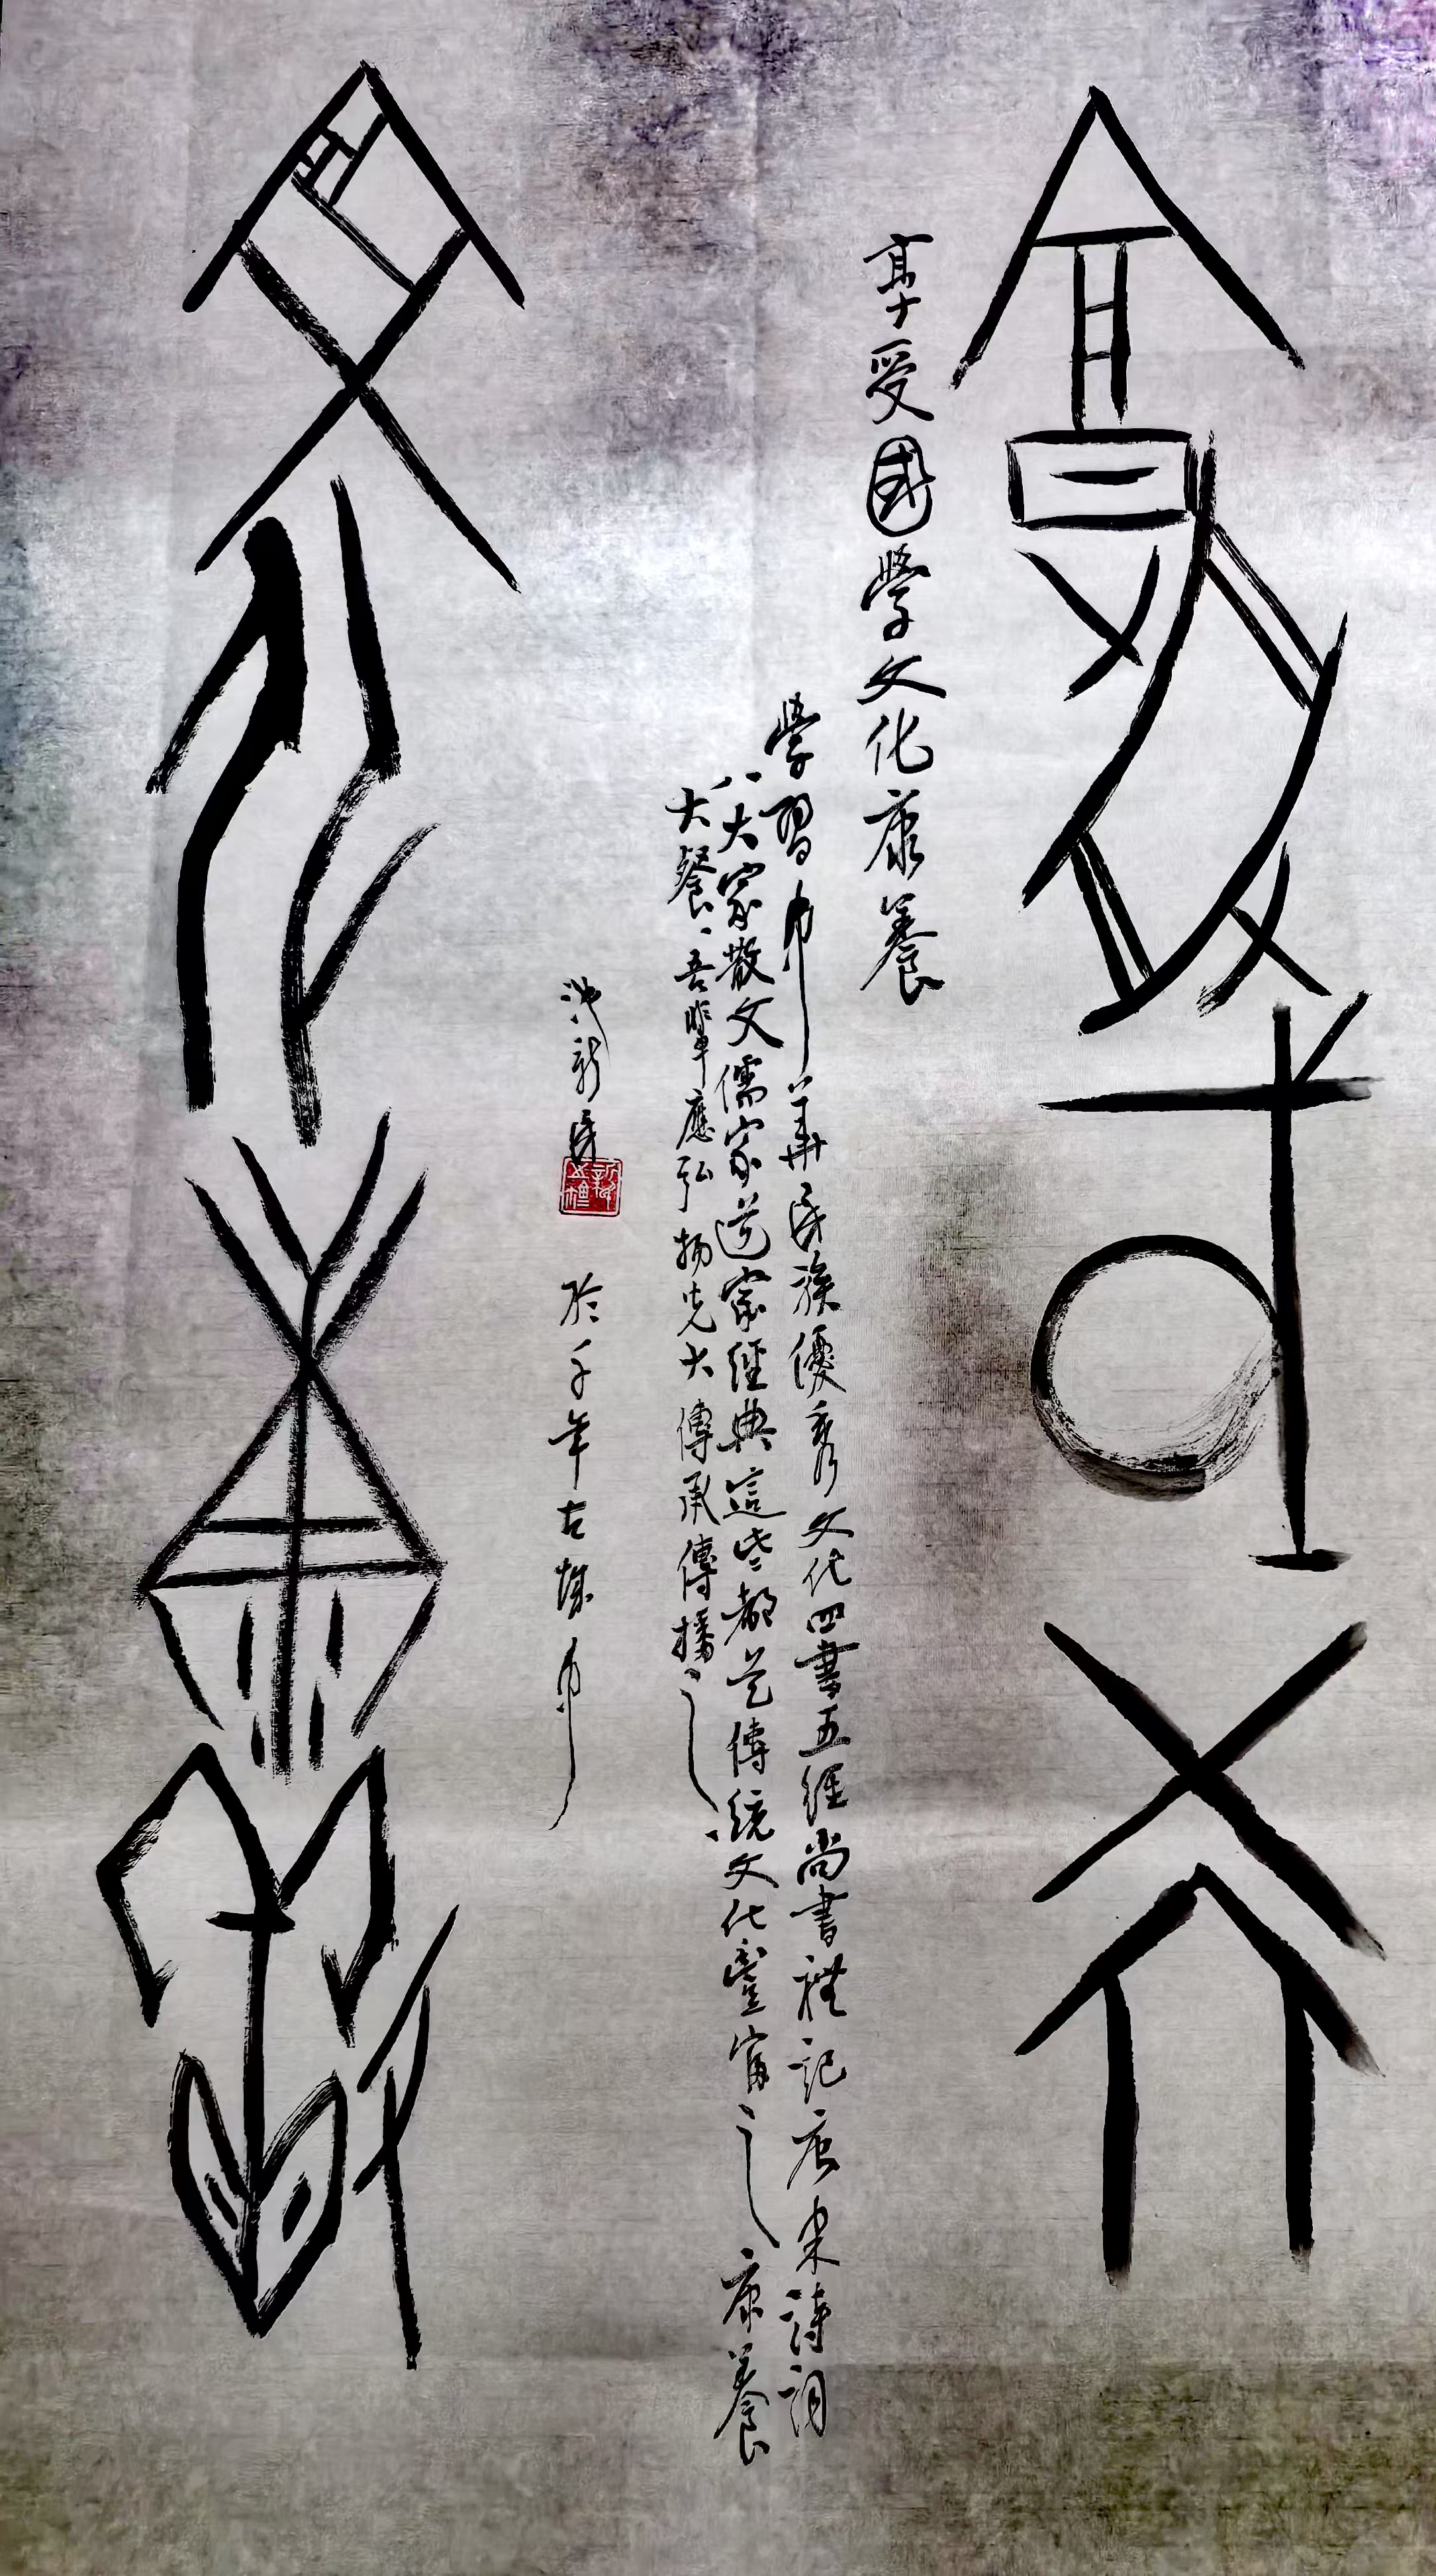 享受國學文化康養
享受國學文化康養
學習中華民族優秀文化四書五經尚書禮記唐宋詩詞
八大家散文儒家道家經典這些都是傳統文化豐富之康養
大餐、吾輩應弘揚光大傳承傳播之、
池新民
於千年古城中